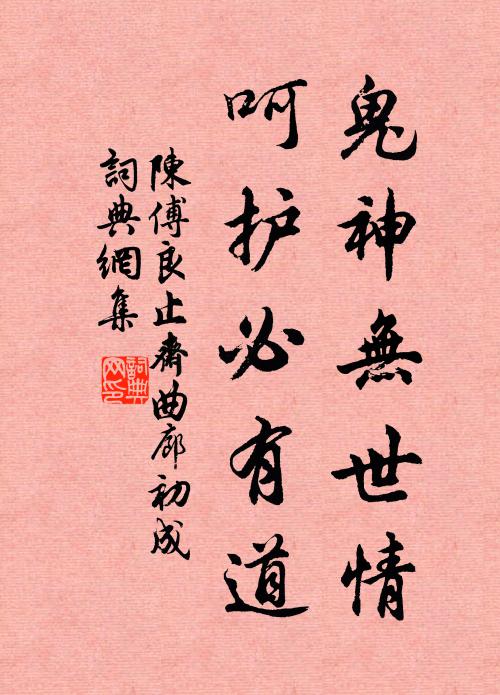 鬼神無世情
呵护必有道
陳傅良止齋曲廊初成
詞典網集
詞典網印